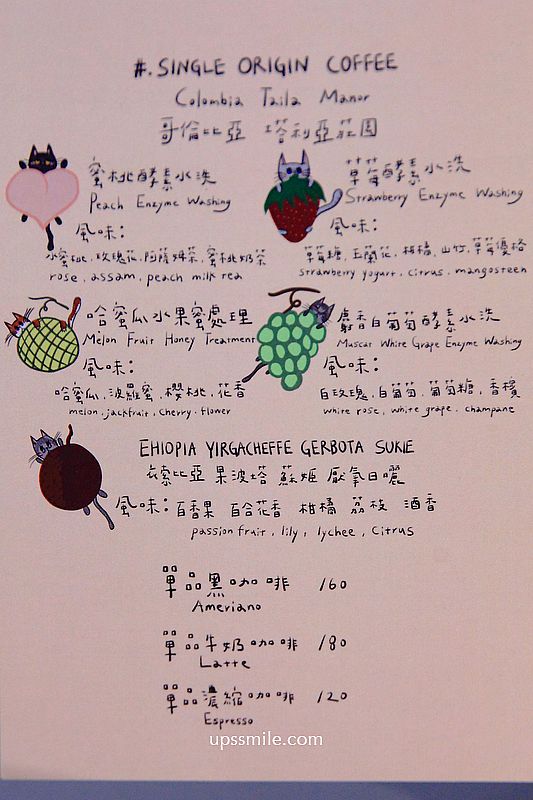 #. SINGLE ORIGIN COFFEE
Colombia Taila Manor
哥倫比亞 塔利亞莊園
蜜桃酵素水洗
Peach Enzyme Washing
風味:
水蜜桃.玫瑰花.阿薩姆茶.蜜桃奶茶
rose. assam. peach milk tea
草莓酵素水洗
Strawberry Enzyme Washing
風味:
草莓糖.玉蘭花.柑橘.山竹.草莓優格
strawberry yogurt. citrus. mangosteen
哈蜜瓜水果蜜處理
Melon Fruit Honey Treatment
風味:
哈蜜瓜.波羅蜜.櫻桃.花香
melon. jackfruit. cherry. flower
麝香白葡萄酵素水洗
Muscat White Grape Enzyme Washing
風味:
白玫瑰.白葡萄.葡萄糖.香檳
white rose. white grape. champane
EHIOPIA YIRGACHEFFE GERBOTA SUKIE
衣索比亞 果波塔 蘇姬 厭氧日曬
風味:百香果 百合花香 柑橘 荔枝 酒香
passion fruit, lily, lychee, Citrus
單品黑咖啡 160
Ameriano
單品牛奶咖啡 180
Latte
單品濃縮咖啡 120
Espresso
upssmile.com